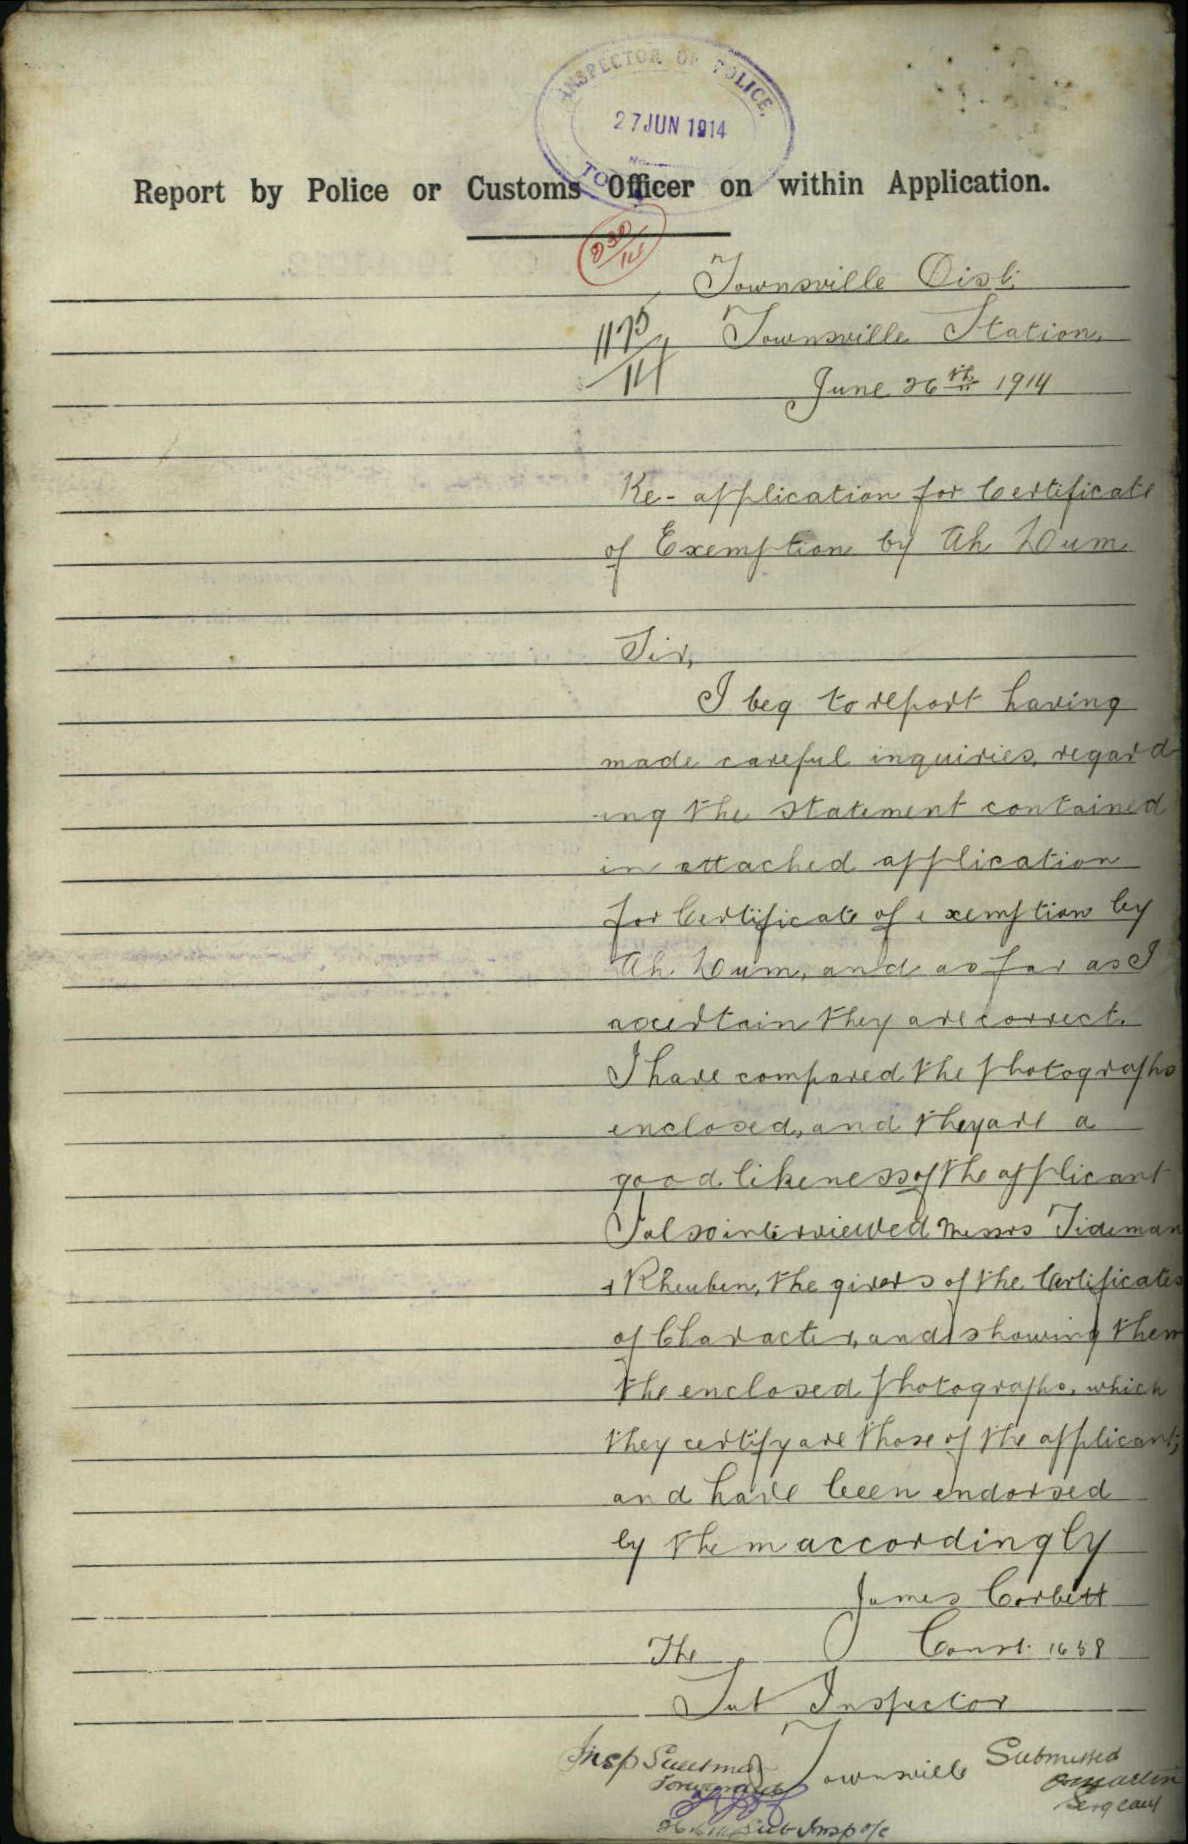 INSPECTOR OF POLICE,
27 JUN 1914
TO
Report by Police or Customs Officer on within Application.
1175/14
Townsville Dist.
Townsville Station.
June 26th 1914
Re- application for Certificate
of Exemption by Ah Dum
Sir,
I beg to report having
made careful inquiries, regard-
ing the statement contained
in attached application
for Certificate of exemption by
Ah Dum, and as far as I
ascertain they are correct.
I have compared the photographs
enclosed, and they are a
good likeness of the applicant
I also interviewed Messrs Tideman
& Rheuben, the givers of the Certificates
of Character, and showing them
the enclosed photographs, which
they certify are those of the applicant;
and have been endorsed
by them accordingly
James Corbett
Const. 1658
The
Sub Inspector
Townsville
Submitted
Sergeant
Insp
Forwarded
Sub Insp o/c